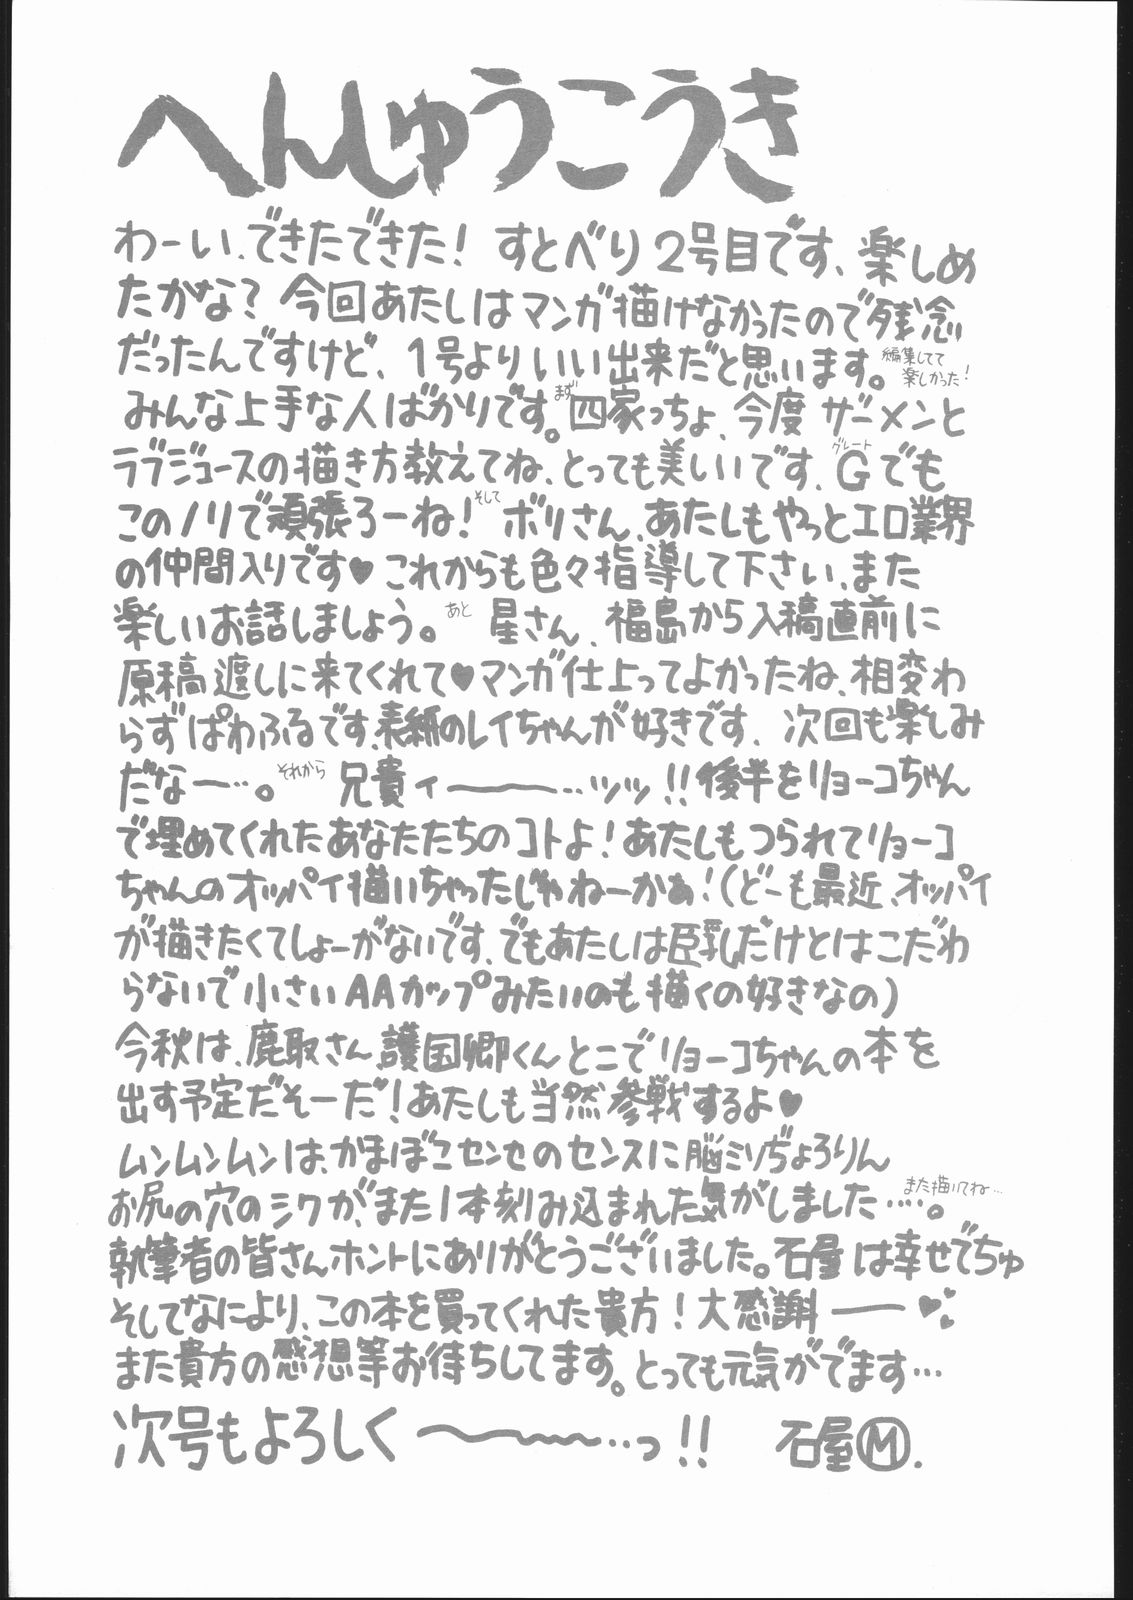 へんしゅうこうき
わーい、できたできた! すとべり2号目です、楽しめ
たかな? 今回あたしはマンガ描けなかったので残念
だったんですけど、1号よりいい出来だと思います。編集してて楽しかった!
みんな上手な人ばかりです。まず四家っちょ、今度ザーメンと
ラブジュースの描き方教えてね、とっても美しいです、G(グレート)でも
このノリで頑張ろーね! そして ボリさん、あたしもやっとエロ業界
の仲間入りです♥ これからも色々指導して下さい、また
楽しいお話しましょう。あと 星さん、福島から入稿直前に
原稿渡しに来てくれて♥マンガ仕上ってよかったね、相変わ
らずぱわふるです、表紙のレイちゃんが好きです、次回も楽しみ
だなー…。それから 兄貴ィー〜〜…ッッ!!後半をリョーコちゃん
で埋めてくれたあなたたちのコトよ!あたしもつられてリョーコ
ちゃんのオッパイ描いちゃったじゃねーかぁ!(どーも最近、オッパイ
が描きたくてしょーがないです、でもあたしは巨乳だけとはこだわ
らないで小さいAAカップみたいのも描くの好きなの)
今秋は、鹿取さん、護国卿くんとこでリョーコちゃんの本を
出す予定だそーだ!あたしも当然参戦するよ♥
ムンムンムンは、かまぼこセンセのセンスに脳ミソぢょろりん
お尻の穴のシワが、また1本刻み込まれた気がしました…。また描いてね…
執筆者の皆さんホントにありがとうございました。石屋は幸せでちゅ
そしてなにより、この本を買ってくれた貴方!大感謝ー♥
また貴方の感想等お待ちしてます。とっても元気がでます…
次号もよろしく〜〜…っ!! 石屋Ⓜ.